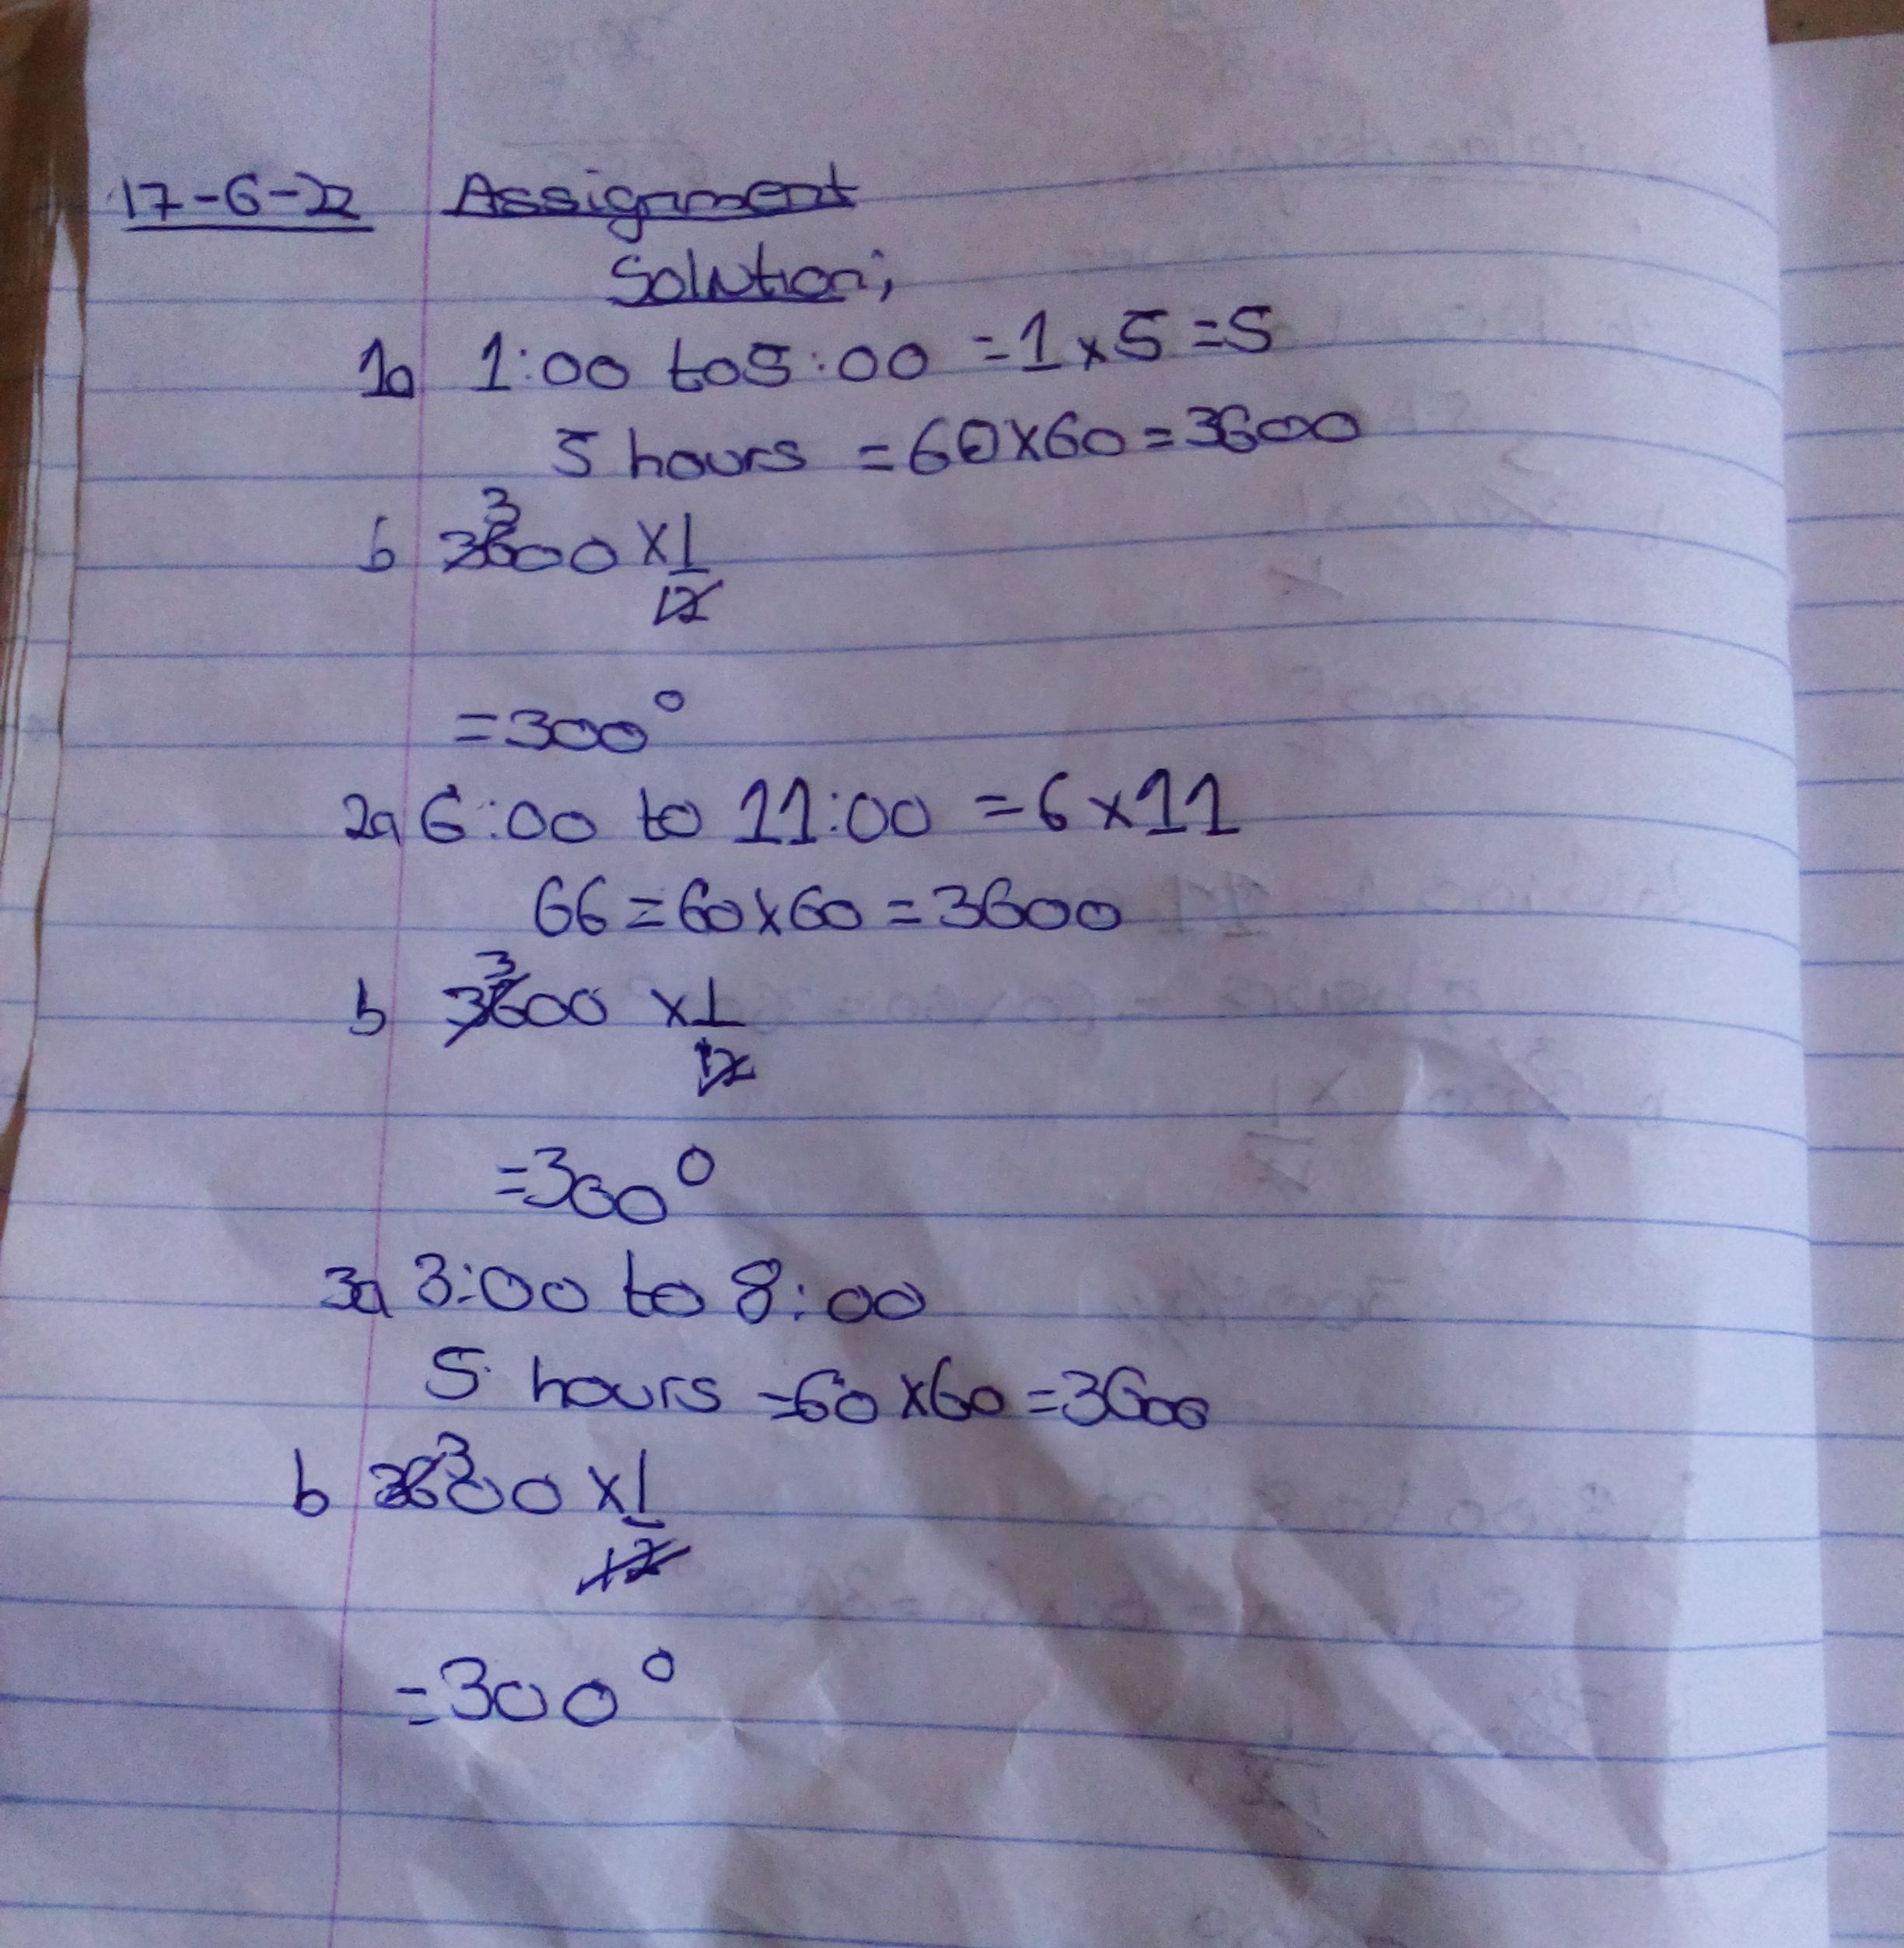 17-6-22 Assignment
Solution;
1a 1:00 to 5:00 = 1 x 5 = 5
5 hours = 60 x 60 = 3600
b 3600 x 1
12
3
= 300°
2a 6:00 to 11:00 = 6 x 11
66 = 60 x 60 = 3600
3
b 3600 x 1
12
= 300°
3a 3:00 to 8:00
5 hours = 60 x 60 = 3600
3
b 3600 x 1
12
= 300°